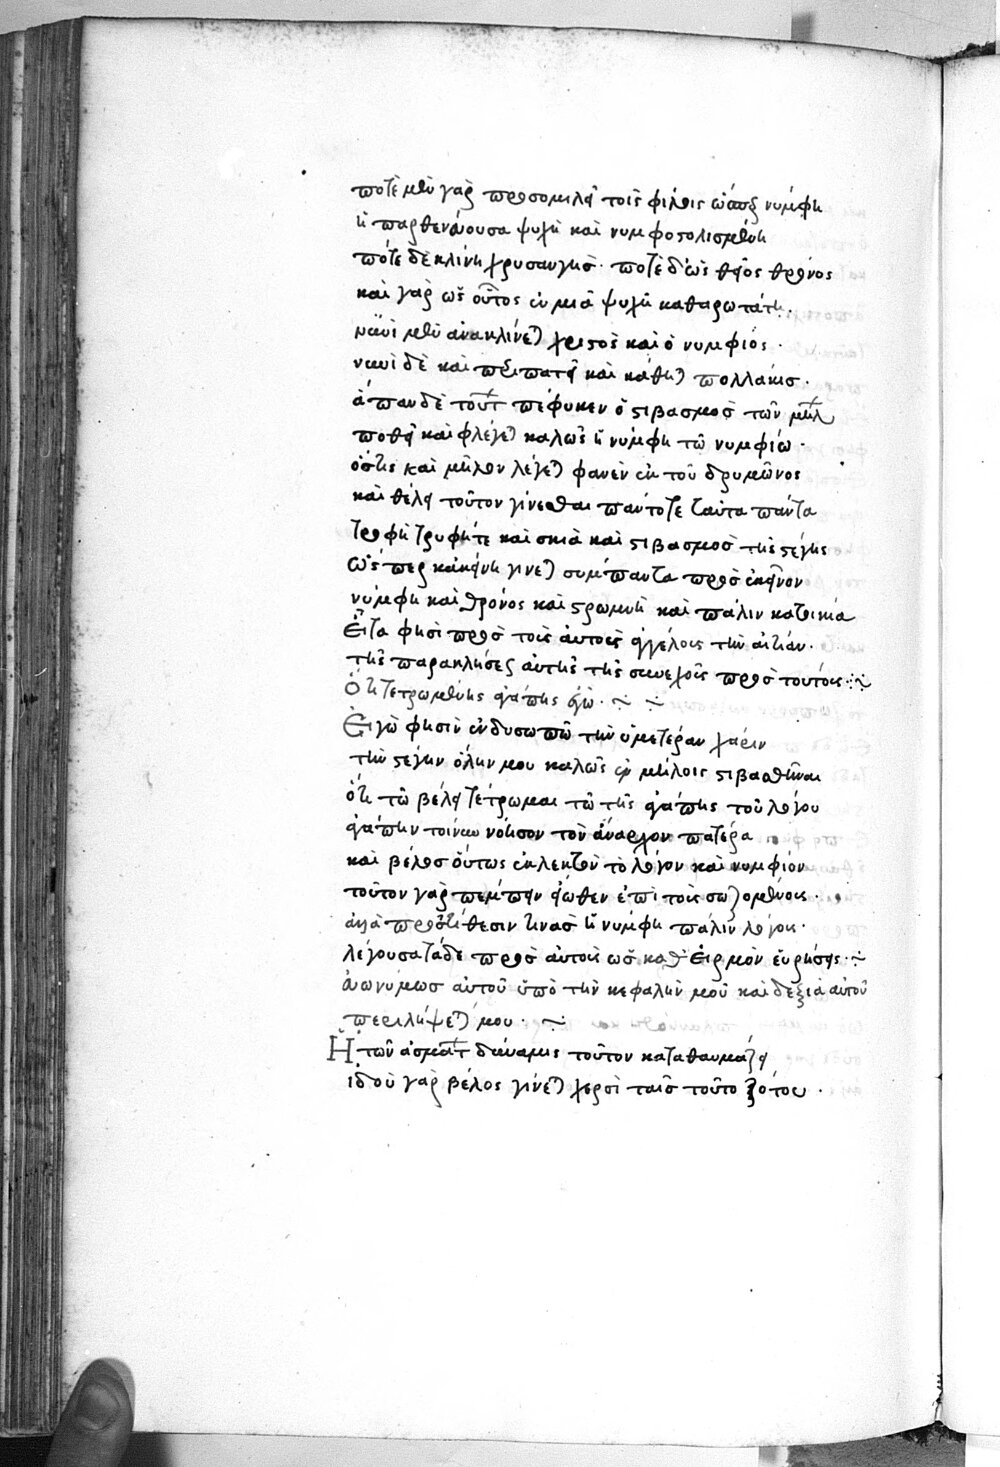 ποτὲ μὲν γὰρ προσομιλεῖ τοῖς φίλοις ὥσπερ νύμφη
ἡ παρθενεύουσα ψυχὴ καὶ νυμφοστολισμένη
πότε δὲ κλίνη χρυσαυγὴς· ποτὲ δ' ὡς θεῖος θρόνος
καὶ γὰρ ὡς οὗτος ἐν μιᾷ ψυχῇ καθαρωτάτῃ·
νυνὶ μὲν ἀνακλίνεται χριστὸς καὶ ὁ νυμφίος·
νυνὶ δὲ καὶ περιπατεῖ καὶ κάθηται πολλάκις·
ἅπαν δὲ τοῦτο πέφυκεν ὁ στιβασμὸς τῶν μήλων
ποθεῖ καὶ φλέγεται καλῶς ἡ νύμφη τῶ νυμφίω·
ὅστις καὶ μῆλον λέγεται φανὲν ἐκ τοῦ δρυμῶνος
καὶ θέλει τοῦτον γίνεσθαι παντοτε ταῦτα πάντα
τροφὴ τρυφή τε καὶ σκιὰ καὶ στιβασμὸς τῆς στέγης
ὥσπερ κἀκείνη γίνεται σύμπαντα πρὸς ἐκεῖνον
νύμφη καὶ θρόνος καὶ στρωμνὴ καὶ πάλιν κατοικία
Εἶτα φησὶ πρὸς τοὺς αὐτοὺς ἀγγέλους τὴν αἰτίαν·
τῆς παρακλήσεως αὐτῆς τῆς συνεχοῦς πρὸς τούτους
Ὅτι τετρωμένης ἀγάπης ἐγώ·
Ἐγὼ φησὶν ἐνδυσωπῶ τὴν ὑμετέραν χάριν
τὴν στέγην ὅλην μου καλῶς ἐν μήλοις στιβασθῆναι
ὅτι τῶ βέλει τέτρωμαι τῶ τῆς ἀγάπης τοῦ λόγου
ἀγάπην τοίνυν νόησον τὸν ἄναρχον πατέρα
καὶ βέλος οὕτως ἐκλεκτὸν τὸ λόγον καὶ νυμφίον
τοῦτον γὰρ πέμπειν εἴωθεν ἐπὶ τοὺς σωζομένους·
ἀλλὰ προστίθεσιν τινὰς ἡ νύμφη πάλιν λόγους·
λέγουσα τάδε πρὸς αὐτοὺς ὡς καθ' εἱρμὸν εὑρήσεις·
εὐωνύμως αὐτοῦ ὑπὸ τὴν κεφαλήν μοῦ καὶ δεξιὰ αὐτοῦ
περιλήψεται μου·
Ἡ τῶν ἀσμάτων δύναμις τοῦτον καταθαυμάζει
ἰδοὺ γὰρ βέλος γίνεται χερσὶ ταῖς τοῦ τοξότου·